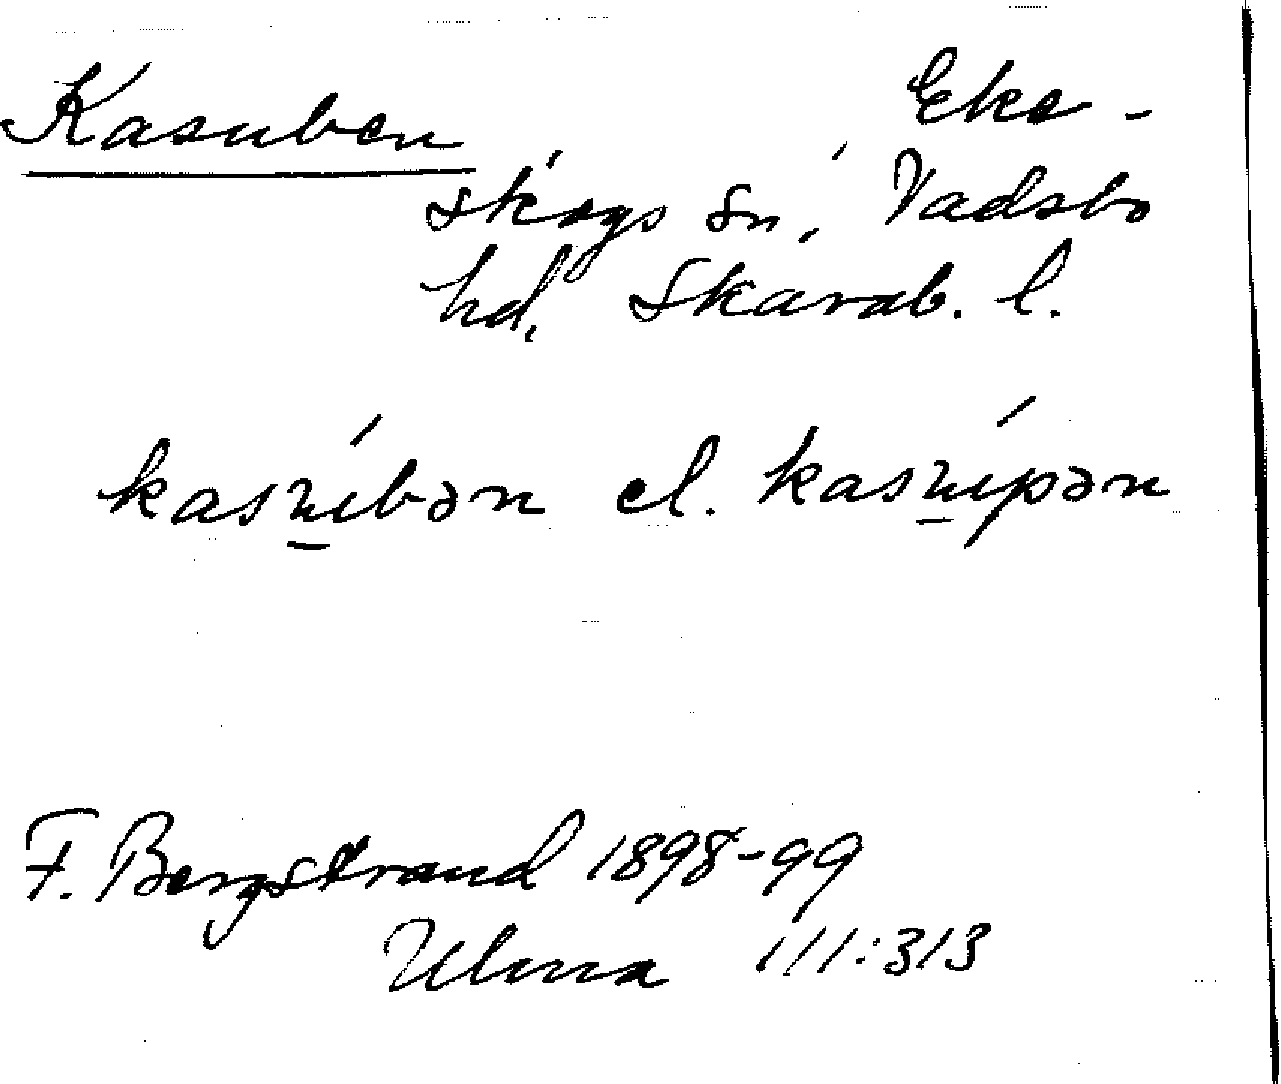 Kasuben Eke-
skogs sn, Vadsbo
hd, Skarab. l.
kasúbən el. kasúpən
F. Bergstrand 1898-99
Ulma 111:313